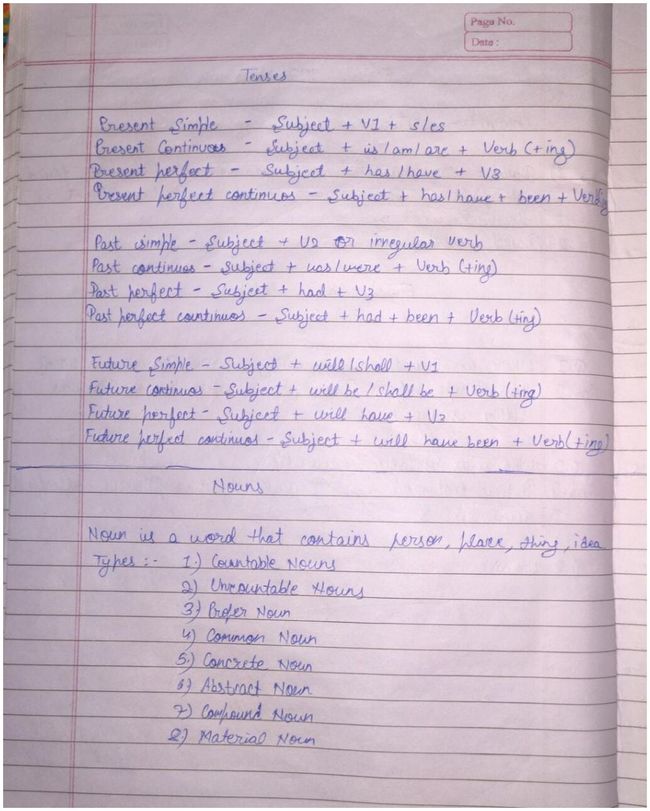 Page No.
Date :
Tenses
Present Simple - Subject + V1 + s/es
Present Continuos - Subject + is/am/are + Verb (+ing)
Present perfect - Subject + has/have + V3
Present perfect continuos - Subject + has/have + been + Verb+ing
Past simple - Subject + V2 or irregular verb
Past continuos - Subject + was/were + Verb (+ing)
Past perfect - Subject + had + V3
Past perfect countinuos - Subject + had + been + Verb (+ing)
Future Simple - Subject + will/shall + V1
Future continuos - Subject + will be / shall be + Verb (+ing)
Future perfect - Subject + will have + V3
Future perfect continuos - Subject + will have been + Verb(+ing)
Nouns
Noun is a word that contains person, place, thing, idea
Types :- 1.) Countable Nouns
2) Uncountable Nouns
3.) Proper Noun
4) Common Noun
5.) Concrete Noun
6) Abstract Noun
7) Compound Noun
8.) Material Noun